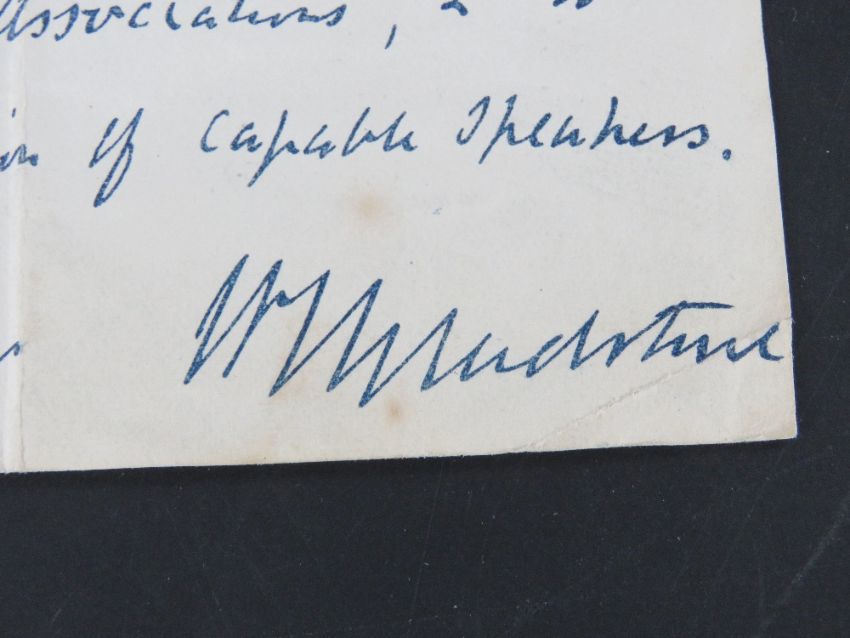 Associations, &
of capable speakers.
WEGladstone